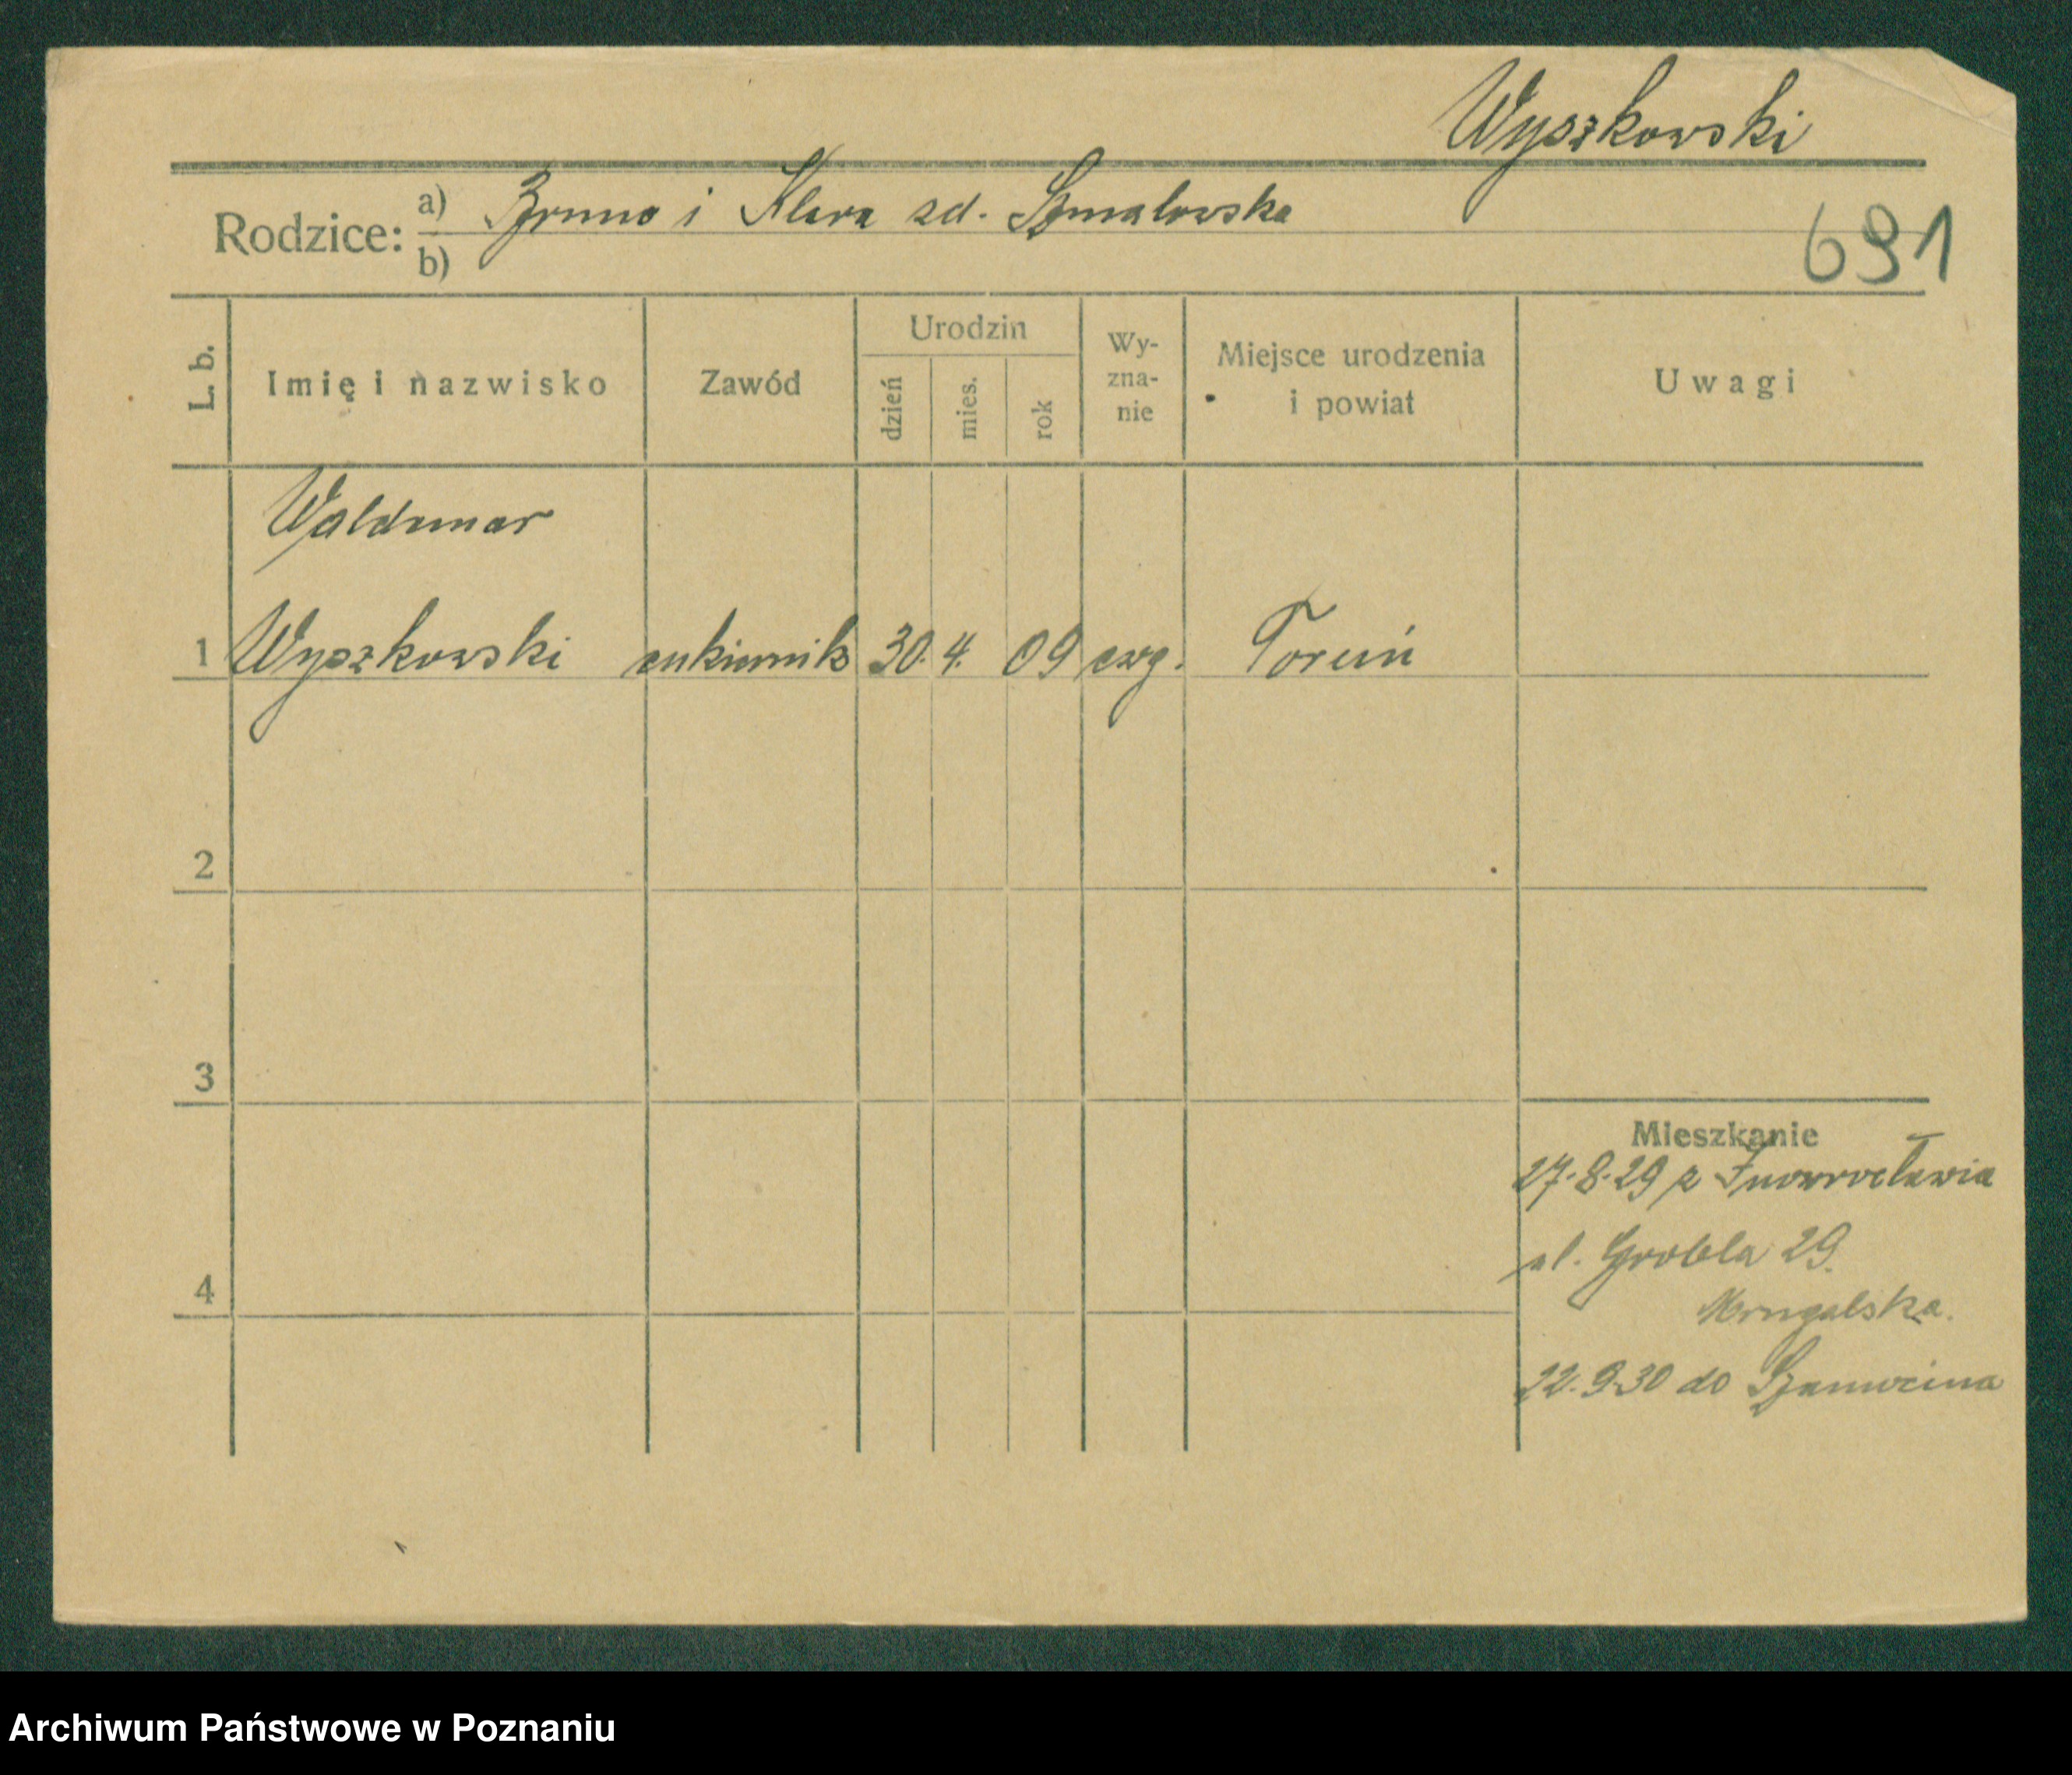 Wyszkowski
Rodzice: a) Bruno i Klara zd. Szmalowska
b)
691
L. b. Imię i nazwisko Zawód Urodzin dzień mies. rok Wyznanie Miejsce urodzenia i powiat Uwagi
Waldemar
1 Wyszkowski cukiernik 30. 4. 09 ewg. Toruń
2
3
Mieszkanie
27.8.29 z Inowrocławia
ul. Grobla 29.
4
Mrugalska.
22.9.30 do Szamocina
Archiwum Państwowe w Poznaniu